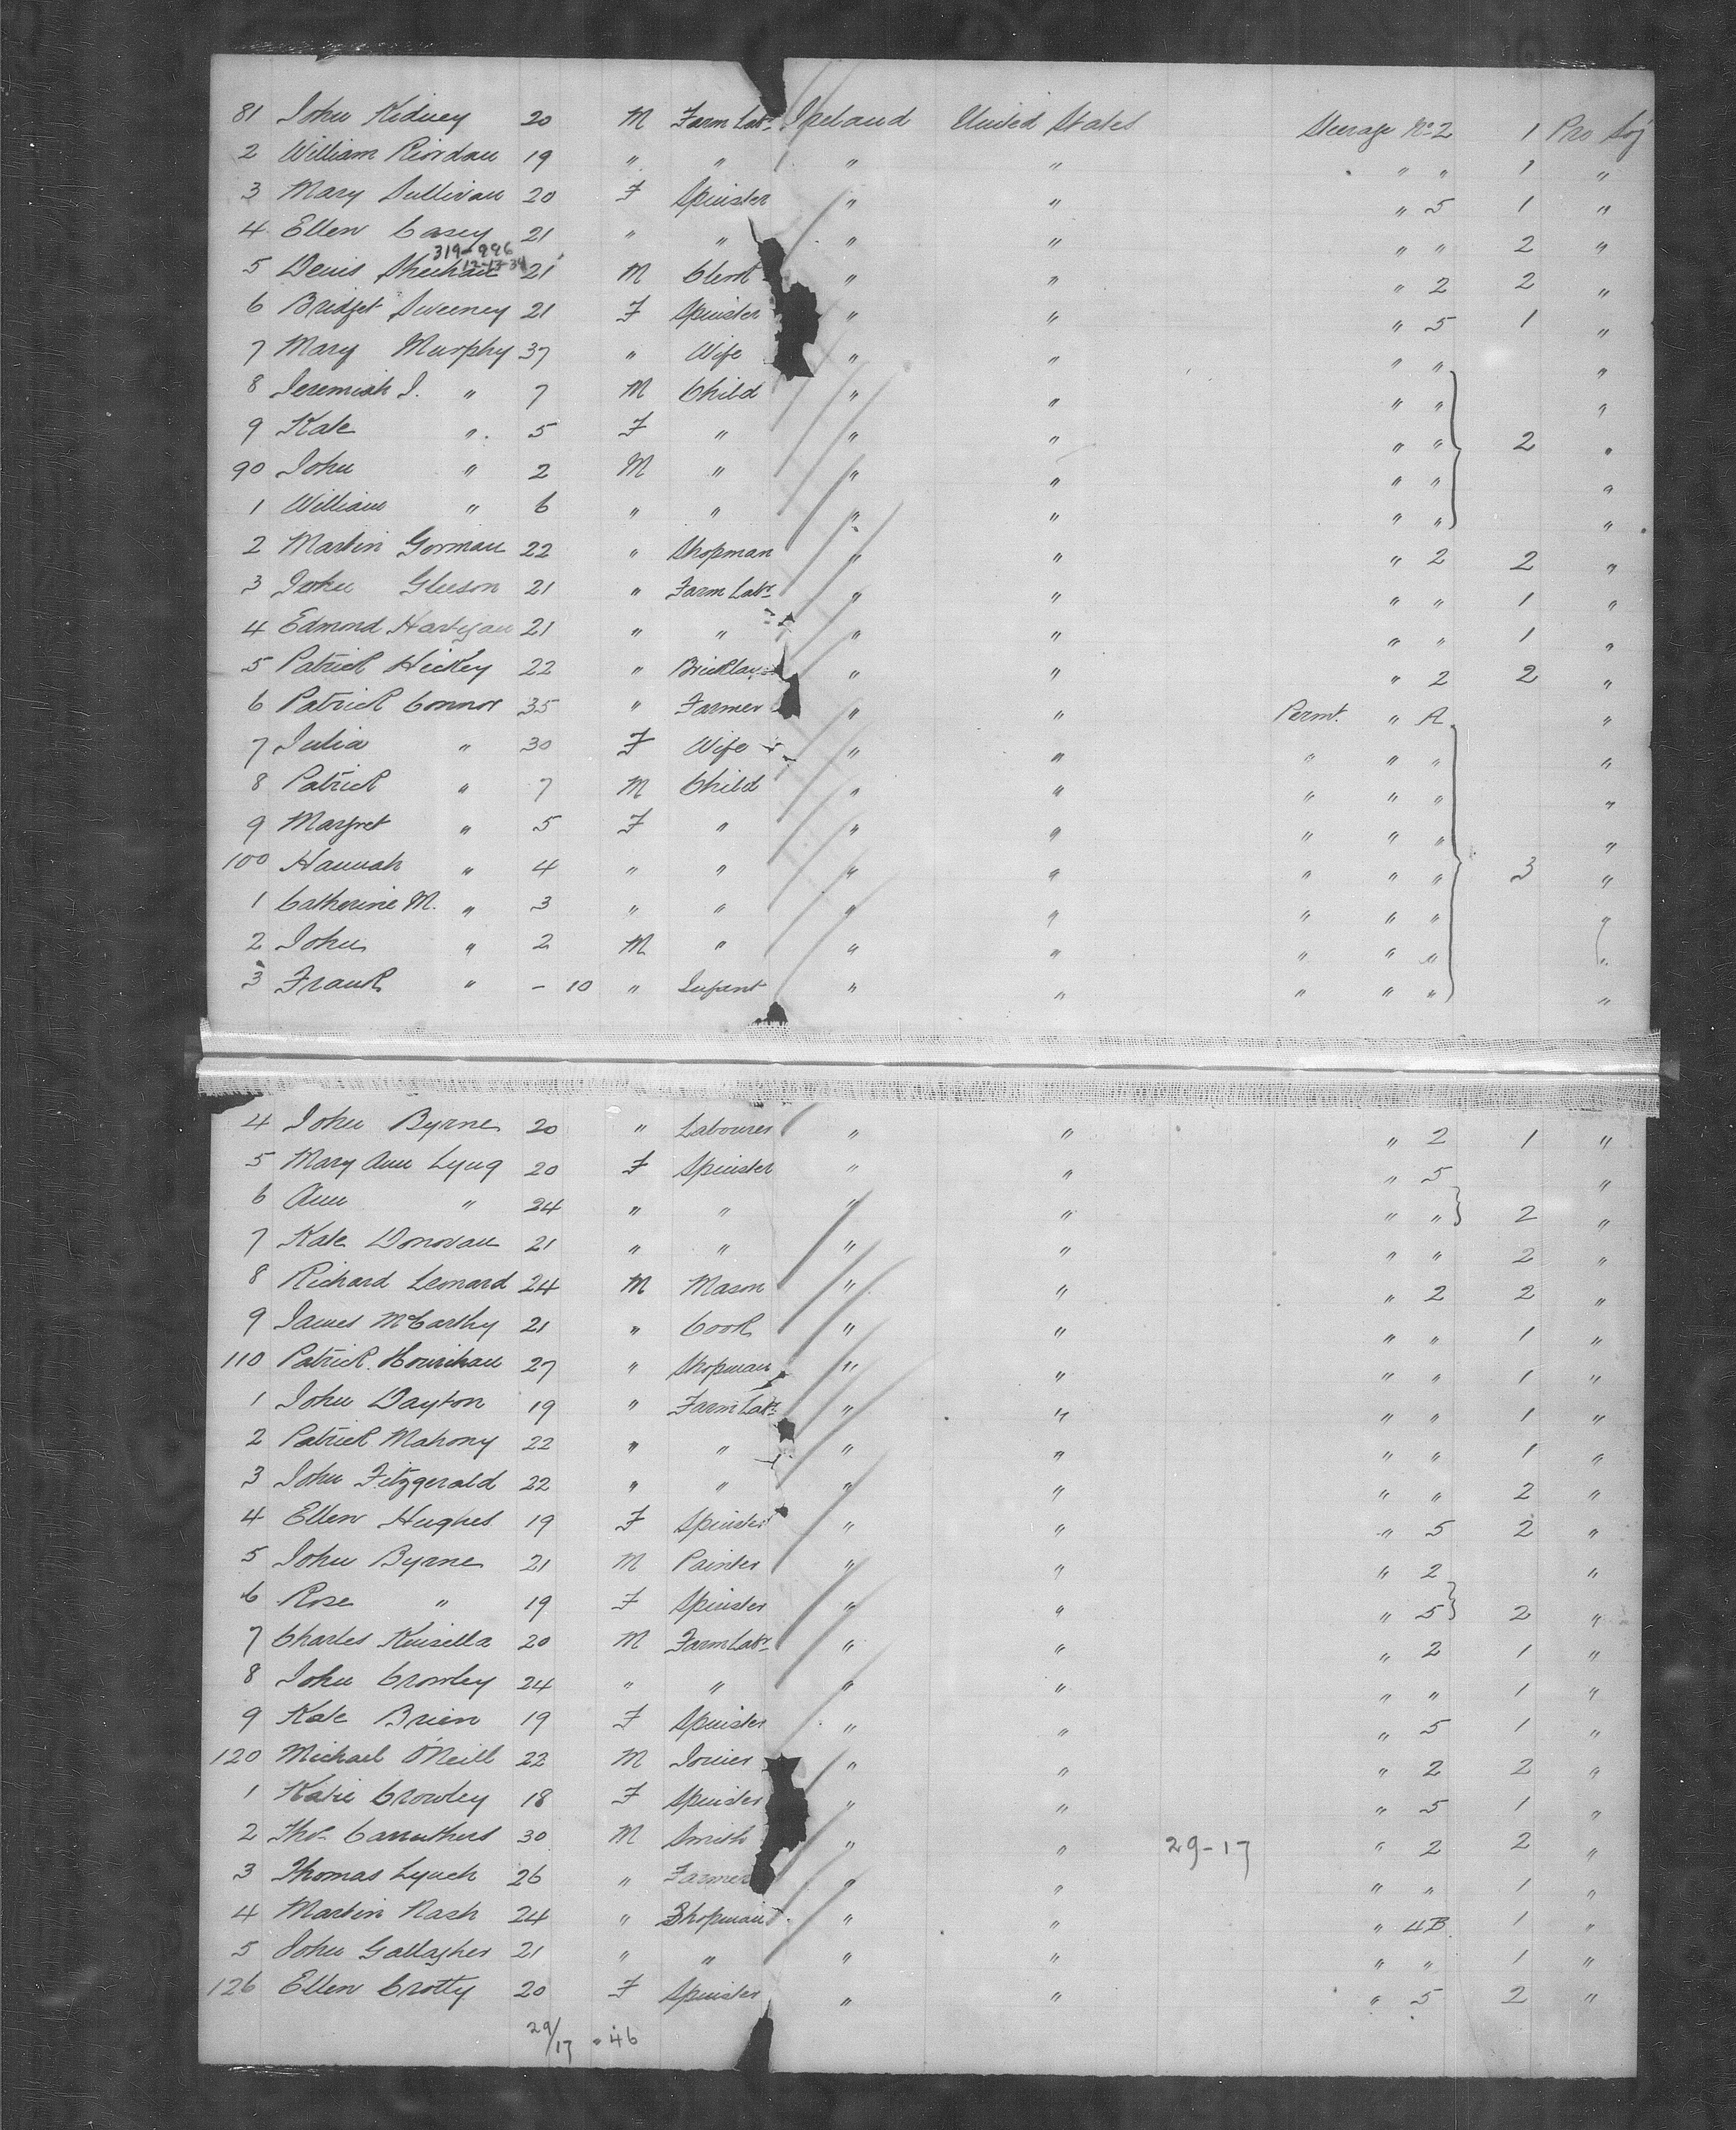 81 John Kidney 20 M Farm Labr Ireland United States Steerage No 2 1 Pro Soj
2 William Riordan 19 " " " " " " 1 "
3 Mary Sullivan 20 F Spinster " " " 5 1 "
4 Ellen Casey 21 " " " " " " 2 "
319-996
12-13-39
5 Denis Sheehan 21 M Clerk " " " 2 2 "
6 Bridget Sweeney 21 F Spinster " " " 5 1 "
7 Mary Murphy 37 " Wife " " " " "
8 Jeremiah J. " 7 M Child " " " " "
9 Kate " 5 F " " " " " 2 "
90 John " 2 M " " " " " "
1 William " 6 " " " " " " "
2 Martin Gorman 22 " Shopman " " " 2 2 "
3 John Gleeson 21 " Farm Labr " " " " 1 "
4 Edmond Hartigan 21 " " " " " " 1 "
5 Patrick Hickey 22 " Bricklayer " " " 2 2 "
6 Patrick Connor 35 " Farmer " " Permt. " A "
7 Julia " 30 F Wife " " " " " "
8 Patrick " 7 M Child " " " " " "
9 Margret " 5 F " " " " " " "
100 Hannah " 4 " " " " " " " 3 "
1 Catherine M. " 3 " " " " " " " "
2 John " 2 M " " " " " " "
3 Frank " - 10 " Infant " " " " " "
4 John Byrne 20 " Labourer " " " 2 1 "
5 Mary Ann Lyng 20 F Spinster " " " 5 "
6 Ann " 24 " " " " " " 2 "
7 Kate Donovan 21 " " " " " " 2 "
8 Richard Leonard 24 M Mason " " " 2 2 "
9 James McCarthy 21 " Cook " " " " 1 "
110 Patrick Hourihan 27 " Shopman " " " " 1 "
1 John Dayton 19 " Farm Labr " " " " 1 "
2 Patrick Mahony 22 " " " " " " 1 "
3 John Fitzgerald 22 " " " " " " 2 "
4 Ellen Hughes 19 F Spinster " " " 5 2 "
5 John Byrne 21 M Painter " " " 2 "
6 Rose " 19 F Spinster " " " 5 2 "
7 Charles Kinsella 20 M Farm Labr " " " 2 1 "
8 John Crowley 24 " " " " " " 1 "
9 Kate Brien 19 F Spinster " " " 5 1 "
120 Michael O'Neill 22 M Joiner " " " 2 2 "
1 Katie Crowley 18 F Spinster " " " 5 1 "
2 Thos Carruthers 30 M Smith " " 29-17 " 2 2 "
3 Thomas Lynch 26 " Farmer " " " " 1 "
4 Martin Nash 24 " Shopman " " " 4B 1 "
5 John Gallagher 21 " " " " " " 1 "
126 Ellen Crotty 20 F Spinster " " " 5 2 "
29/17 = 46